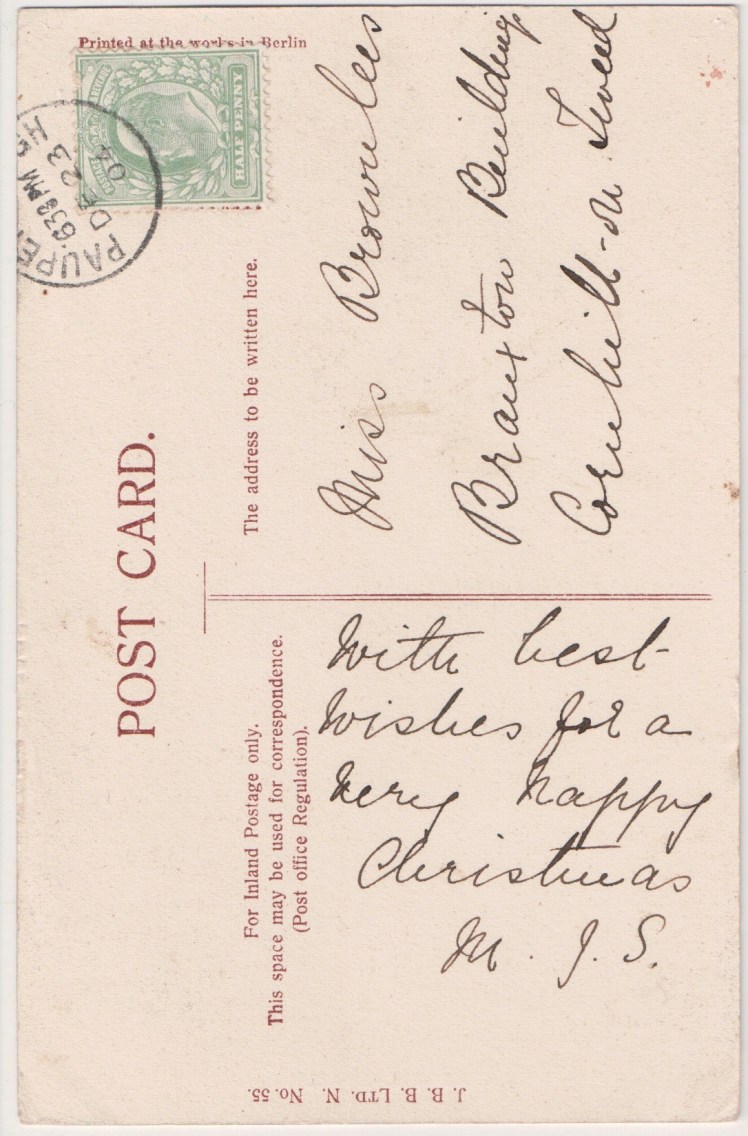 Printed at the works in Berlin
POST CARD.
The address to be written here.
For Inland Postage only.
This space may be used for correspondence.
(Post office Regulation).
HALF PENNY
630PM
DE 23
04
Miss Brownlees
Branxton Building
Cornhill-on Tweed
With best
wishes for a
very happy
Christmas
M. J. S.
J. B. B. LTD. N. No. 55.